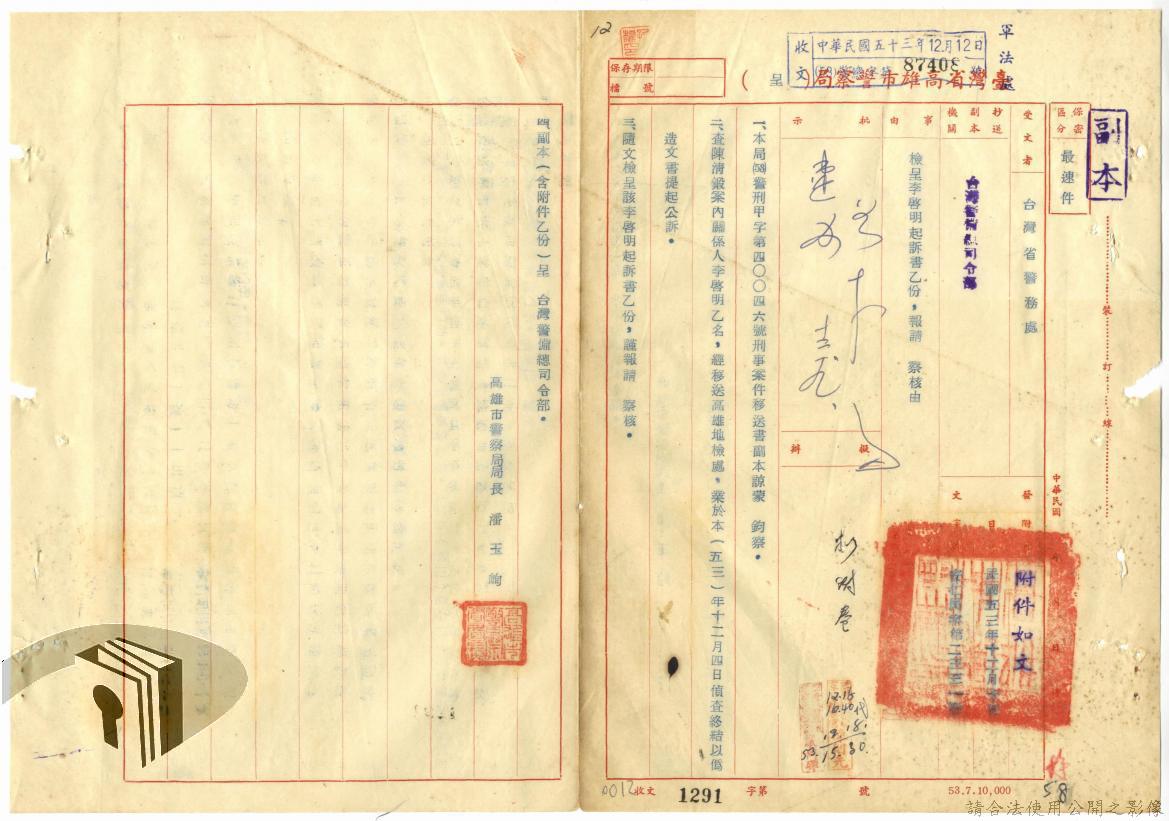 副本
保密區分
最速件
裝
訂
線
受文者
台灣省警務處
抄送副本機關
台灣警備總司令部
軍法處
臺灣省高雄市警察局（呈）
收文
中華民國五十三年12月12日
87408
保存期限
檔號
12
事由
檢呈李啓明起訴書乙份，報請　察核由
批示
擬辦
中華民國
附件如文
一、本局(53)警刑甲字第四〇〇四六號刑事案件移送書副本諒蒙　鈞察。
二、查陳清鍛案內關係人李啓明乙名，經移送高雄地檢處，業於本（五三）年十二月四日偵查終結以僞
造文書提起公訴。
三、隨文檢呈該李啓明起訴書乙份，謹報請　察核。
四、副本（含附件乙份）呈　台灣警備總司令部。
高雄市警察局局長　潘玉峋
12.16
10.40
12.18.
53.
15.30
0012
收文
1291
字第
號
53.7.10,000
58
請合法使用公開之影像